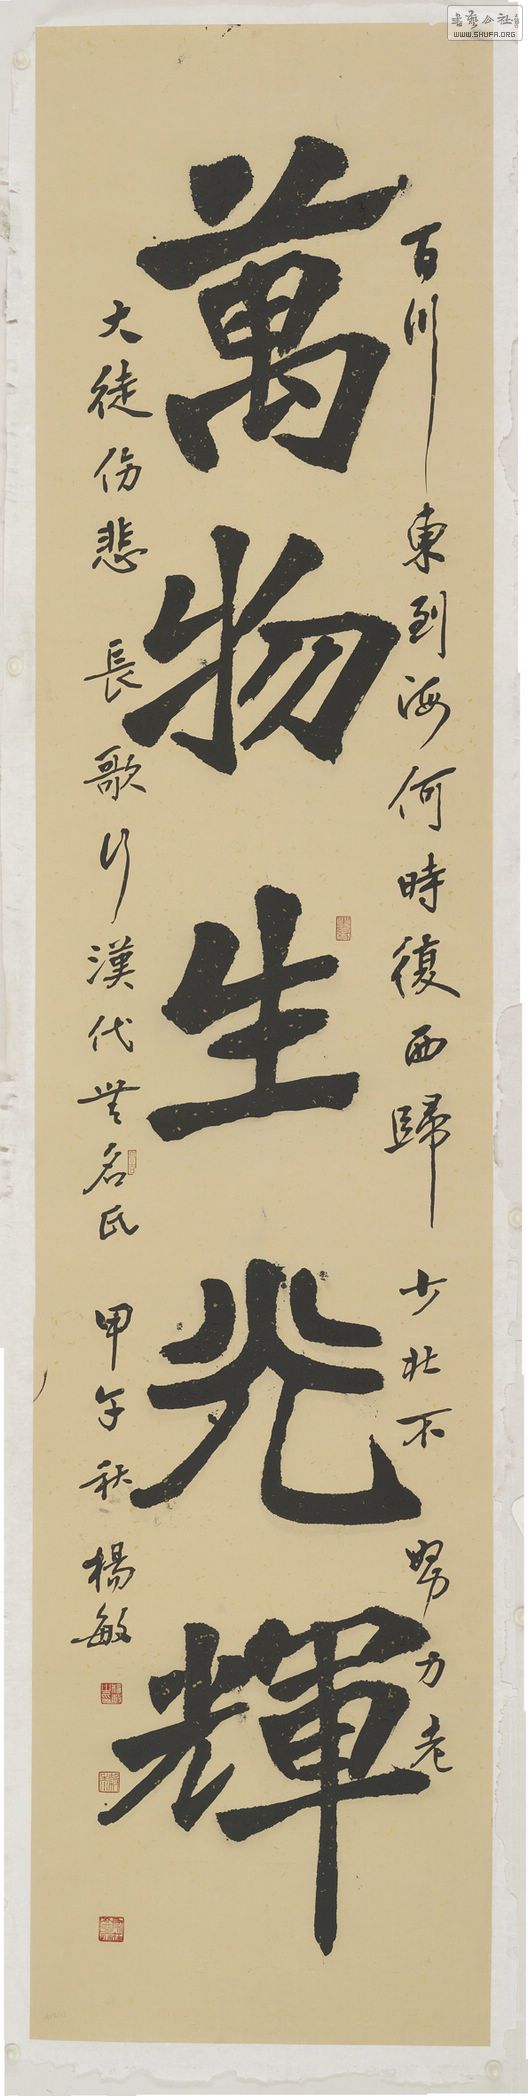 萬物生光輝
百川東到海何時復西歸少壯不努力老
大徒傷悲 長歌行漢代無名氏 甲午秋 楊敏
書藝公社
WWW.SHUFA.ORG